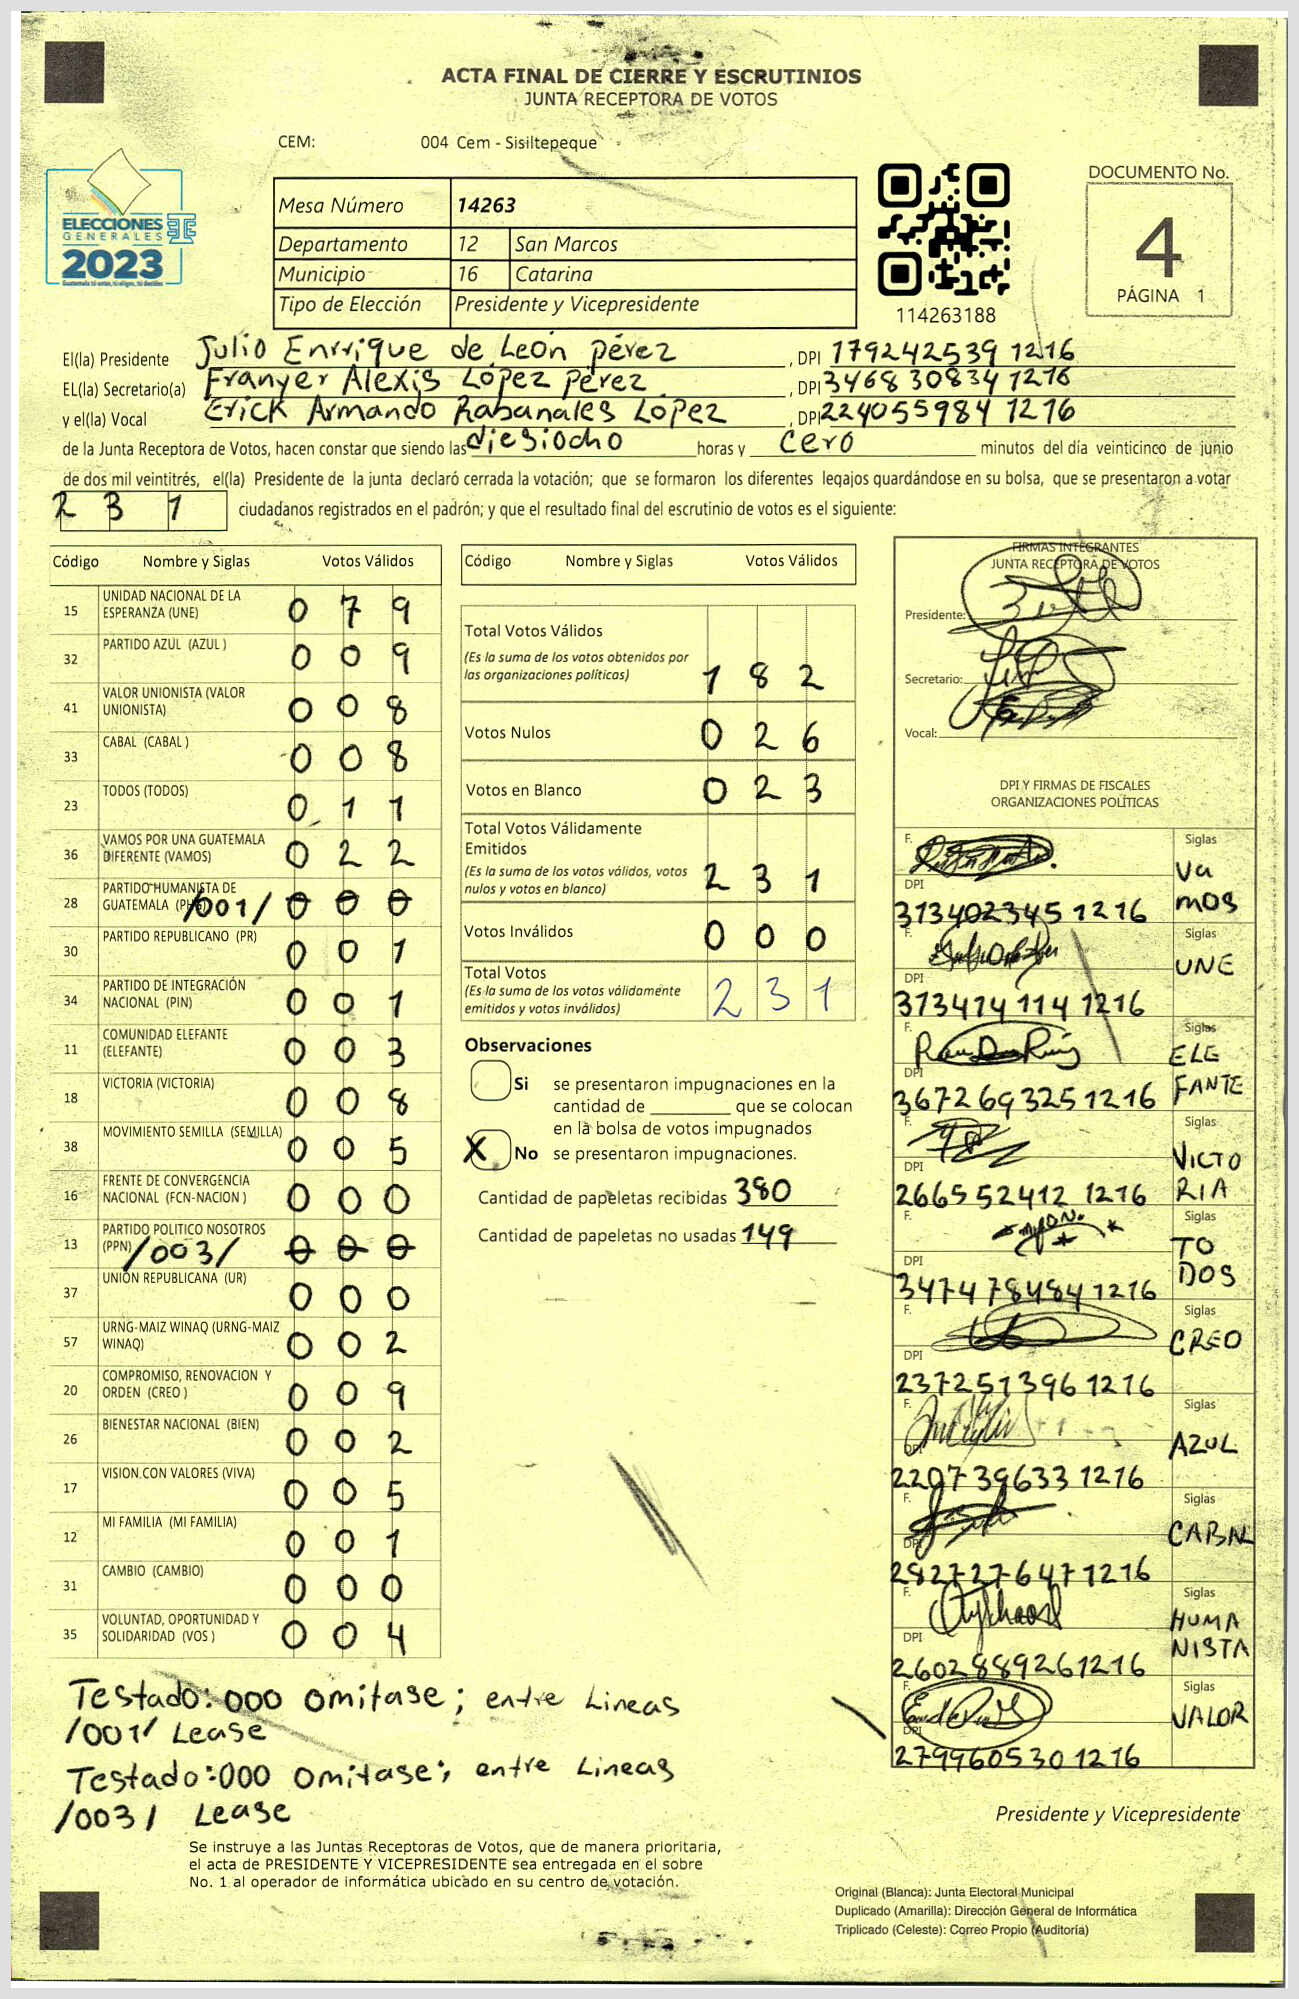 ACTA FINAL DE CIERRE Y ESCRUTINIOS
JUNTA RECEPTORA DE VOTOS
CEM: 004 Cem - Sisiltepeque
ELECCIONES
GENERALES
2023
Mesa Número 14263
Departamento 12 San Marcos
Municipio 16 Catarina
Tipo de Elección Presidente y Vicepresidente
114263188
DOCUMENTO No.
4
PÁGINA 1
El(la) Presidente Julio Enrrique de León pérez , DPI 179242539 1216
EL(la) Secretario(a) Franyer Alexis López pérez , DPI 3468 30834 1216
y el(la) Vocal Erick Armando Rabanales López , DPI 224055984 1216
de la Junta Receptora de Votos, hacen constar que siendo las diesiocho horas y cero minutos del día veinticinco de junio
de dos mil veintitrés, el(la) Presidente de la junta declaró cerrada la votación; que se formaron los diferentes legajos guardándose en su bolsa, que se presentaron a votar
231 ciudadanos registrados en el padrón; y que el resultado final del escrutinio de votos es el siguiente:
Código Nombre y Siglas Votos Válidos
15 UNIDAD NACIONAL DE LA ESPERANZA (UNE) 0 7 9
32 PARTIDO AZUL (AZUL ) 0 0 9
41 VALOR UNIONISTA (VALOR UNIONISTA) 0 0 8
33 CABAL (CABAL ) 0 0 8
23 TODOS (TODOS) 0 1 1
36 VAMOS POR UNA GUATEMALA DIFERENTE (VAMOS) 0 2 2
28 PARTIDO HUMANISTA DE GUATEMALA (PHG) /001/ 0 0 0
30 PARTIDO REPUBLICANO (PR) 0 0 1
34 PARTIDO DE INTEGRACIÓN NACIONAL (PIN) 0 0 1
11 COMUNIDAD ELEFANTE (ELEFANTE) 0 0 3
18 VICTORIA (VICTORIA) 0 0 8
38 MOVIMIENTO SEMILLA (SEMILLA) 0 0 5
16 FRENTE DE CONVERGENCIA NACIONAL (FCN-NACION ) 0 0 0
13 PARTIDO POLITICO NOSOTROS (PPN) /003/ 0 0 0
37 UNIÓN REPUBLICANA (UR) 0 0 0
57 URNG-MAIZ WINAQ (URNG-MAIZ WINAQ) 0 0 2
20 COMPROMISO, RENOVACION Y ORDEN (CREO ) 0 0 9
26 BIENESTAR NACIONAL (BIEN) 0 0 2
17 VISION CON VALORES (VIVA) 0 0 5
12 MI FAMILIA (MI FAMILIA) 0 0 1
31 CAMBIO (CAMBIO) 0 0 0
35 VOLUNTAD, OPORTUNIDAD Y SOLIDARIDAD (VOS ) 0 0 4
Testado: 000 omitase; entre Lineas
/001/ Lease
Testado:000 omitase; entre Lineas
/003/ Lease
Código Nombre y Siglas Votos Válidos
Total Votos Válidos
(Es la suma de los votos obtenidos por
las organizaciones políticas) 1 8 2
Votos Nulos 0 2 6
Votos en Blanco 0 2 3
Total Votos Válidamente
Emitidos
(Es la suma de los votos válidos, votos
nulos y votos en blanco) 2 3 1
Votos Inválidos 0 0 0
Total Votos
(Es la suma de los votos válidamente
emitidos y votos inválidos) 2 3 1
Observaciones
Si se presentaron impugnaciones en la
cantidad de ________ que se colocan
en la bolsa de votos impugnados
X No se presentaron impugnaciones.
Cantidad de papeletas recibidas 380
Cantidad de papeletas no usadas 149
FIRMAS INTEGRANTES
JUNTA RECEPTORA DE VOTOS
Presidente:
Secretario:
Vocal:
DPI Y FIRMAS DE FISCALES
ORGANIZACIONES POLÍTICAS
F. Siglas
DPI Vamos
313402345 1216
F. Siglas
DPI UNE
373414 114 1216
F. Siglas
DPI ELEFANTE
367269325 1216
F. Siglas
DPI VICTORIA
266552412 1216
F. Siglas
DPI TODOS
347478484 1216
F. Siglas
DPI CREO
237251396 1216
F. Siglas
DPI AZUL
220739633 1216
F. Siglas
DPI CABAL
282727647 1216
F. Siglas
DPI HUMANISTA
260288926 1216
F. Siglas
DPI VALOR
279960530 1216
Presidente y Vicepresidente
Se instruye a las Juntas Receptoras de Votos, que de manera prioritaria,
el acta de PRESIDENTE Y VICEPRESIDENTE sea entregada en el sobre
No. 1 al operador de informática ubicado en su centro de votación.
Original (Blanca): Junta Electoral Municipal
Duplicado (Amarilla): Dirección General de Informática
Triplicado (Celeste): Correo Propio (Auditoría)